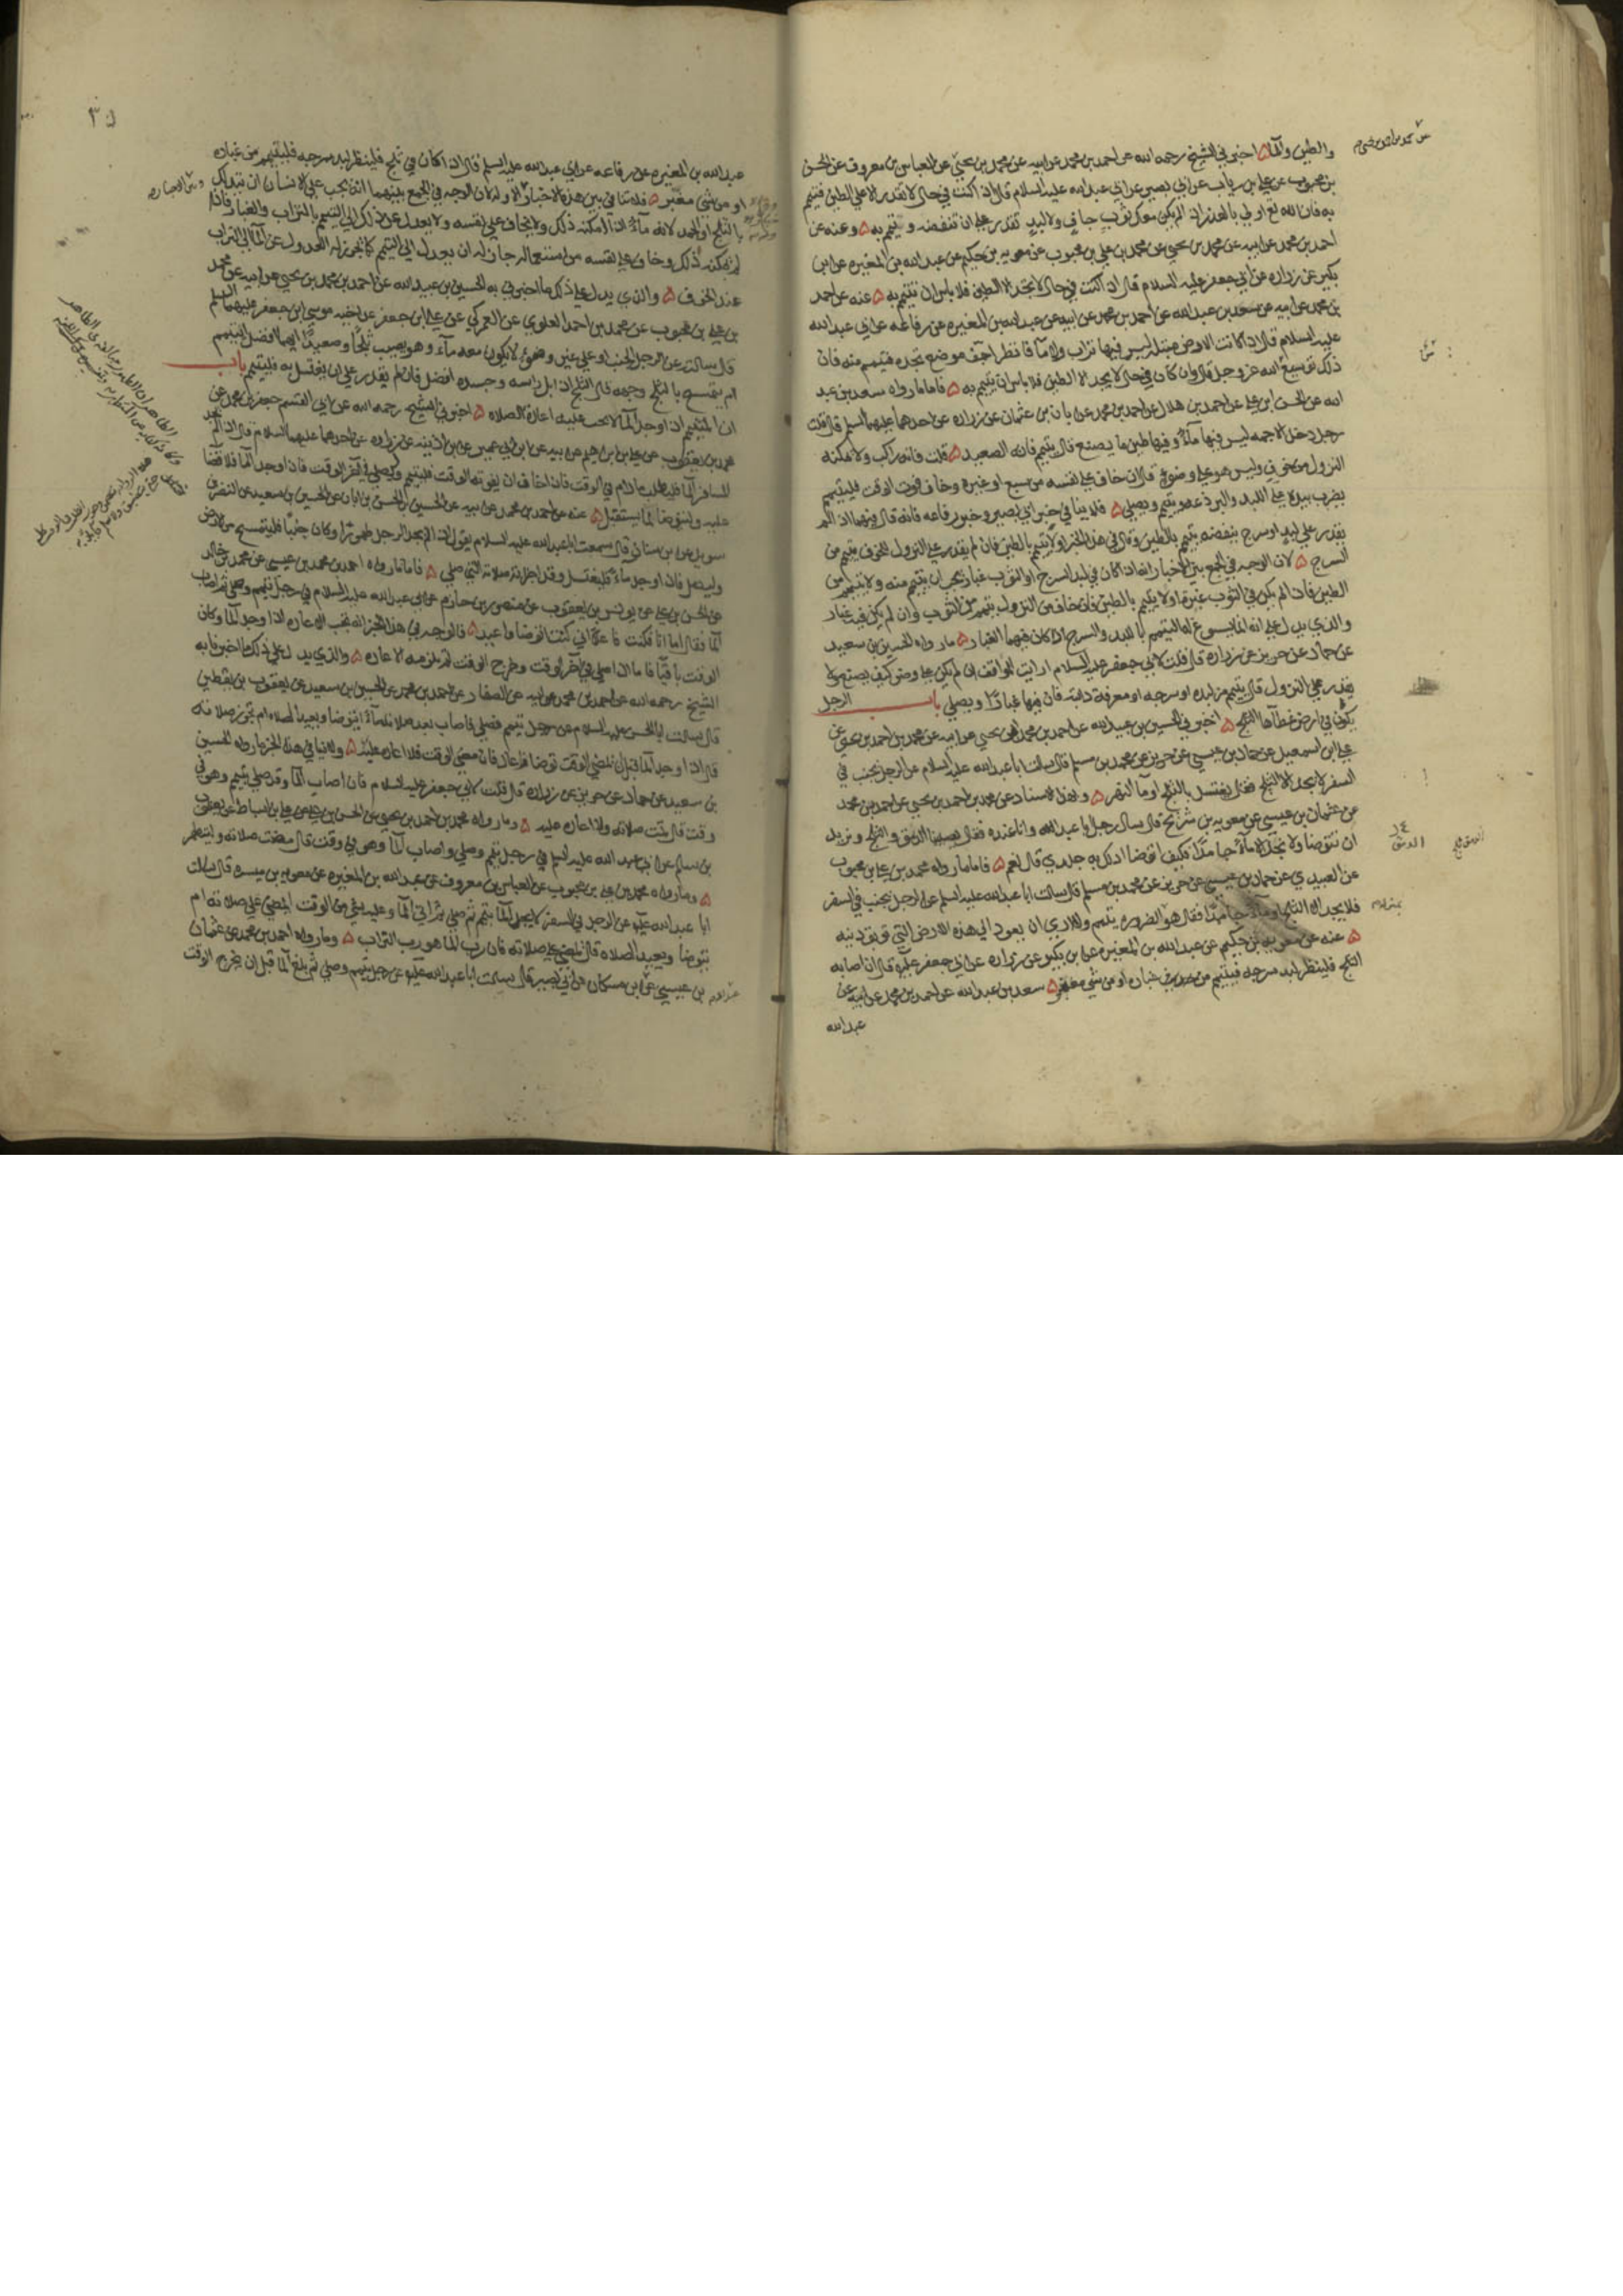 والطين والماء اخبرني الشيخ رحمه الله عن احمد بن محمد عن ابيه عن محمد بن يحيى عن العباس بن معروف عن الحسن
بن محبوب عن علي بن رياب عن ابي بصير عن ابي عبد الله عليه السلام قال اذا كنت في حال لا تقدر الا على الطين فتيمم
به فان الله تع اولى بالعذر اذا لم يكن معك ثوب جاف ولا لبد تقدر على ان تنفضه و تتيمم به وعنه عن
احمد بن محمد عن ابيه عن محمد بن يحيى عن محمد بن علي بن محبوب عن معويه بن حكيم عن عبد الله بن المغيره عن ابن
بكير عن زراره عن ابي جعفر عليه السلام قال ان كنت في حال لا تجد الا الطين فلا باس ان تتيمم به عنه عن احمد
بن محمد عن ابيه عن سعد بن عبد الله عن احمد بن محمد عن ابيه عن عبد الله بن المغيره عن رفاعه عن ابي عبد الله
عليه السلام قال اذا كانت الارض مبتله ليس فيها تراب ولا ماء فانظر اجف موضع تجده فتيمم منه فان
ذلك توسيع من الله عز وجل قال وان كان في حال لا يجد الا الطين فلا باس ان يتيمم به فاما ما رواه سعد بن عبد
الله عن الحسن ابن علي عن احمد بن هلال عن احمد بن محمد عن ابان بن عثمان عن زراره عن احدهما عليهما السلم قال قلت
رجل دخل الاجمه ليس فيها ماء وفيها طين ما يصنع قال يتيمم فانه الصعيد قلت فانه راكب ولا يمكنه
النزول من خوف وليس هو على وضوء قال ان خاف على نفسه من سبع او غيره وخاف فوت الوقت فليتيمم
يضرب بيده على اللبد والبرذعه ويتيمم ويصلي فلا ينافي خبر ابي بصير وخبر رفاعه لانه قال فيهما اذا لم
يقدر على لبد او سرج ينفضه تيمم بالطين وقال في هذا الخبر اولا يتيمم بالطين فان لم يقدر على النزول للخوف تيمم من
السرج لان الوجه في الجمع بين الاخبار انه ان كان في لبد السرج او الثوب غبار يجب ان يتيمم منه ولا يتيمم من
الطين فاذا لم يكن في الثوب غبره اولا يتيمم بالطين فان خاف من النزول تيمم من الثوب وان لم يكن فيه غبار
والذي يدل على انه انما يسوغ له التيمم باللبد والسرج اذا كان فيهما الغبار ما رواه الحسين بن سعيد
عن حماد عن حريز عن زراره قال قلت لابي جعفر عليه السلام ارايت المواقف ان لم يكن على وضوء كيف يصنع ولا
يقدر على النزول قال يتيمم من لبده او سرجه او معرفه دابته فان فيها غبارا ويصلي باب الرجل
يكون في ارض غطاها الثلج اخبرني الحسين بن عبيد الله عن احمد بن محمد بن يحيى عن ابيه عن محمد بن احمد بن يحيى عن
علي ابن اسمعيل عن حماد بن عيسى عن حريز عن محمد بن مسلم قال سالت ابا عبد الله عليه السلام عن الرجل يجنب في
السفر لا يجد الا الثلج فقال يغتسل بالثلج او ماء النهر وبهذا الاسناد عن محمد بن احمد بن يحيى عن احمد بن محمد
عن عثمان بن عيسى عن معويه بن شريح قال سال رجل ابا عبد الله وانا عنده فقال يصيبنا الدمق والثلج ونريد
ان نتوضا ولا نجد الا ماء جامدا فكيف اتوضا ادلك به جلدي قال نعم فاما ما رواه محمد بن علي بن محبوب
عن العبيدي عن حماد بن عيسى عن حريز عن محمد بن مسلم قال سالت ابا عبد الله عليه السلم عن الرجل يجنب في السفر
فلا يجد الا الثلج او ماء جامدا فقال هو الضروره يتيمم ولا ارى ان يعود الى هذه الارض التي توبق دينه
عنه عن معويه بن حكيم عن عبد الله بن المغيره عن ابن بكير عن زراره عن ابي جعفر عليه قال ان اصابه
الثلج فلينظر لبد سرجه فيتيمم من غباره او من شي مغبر سعد بن عبد الله عن احمد بن محمد عن ابيه عن
عبد الله
عبد الله بن المغيره عن رفاعه عن ابي عبد الله عليه السلم قال اذا كان في ثلج فلينظر لبد سرجه فليتيمم من غباره
او من شي مغبر فلا تنافي بين هذه الاخبار والاوله لان الوجه في الجمع بينهما انه يجب على الانسان ان يتدلك
بالثلج او الجمد لانه ماء اذا امكنه ذلك ولا يخاف على نفسه ولا يعدل عن ذلك الى التيمم بالتراب والغبار فاذا
لم يمكنه ذلك وخاف على نفسه من استعماله جاز له ان يعدل الى التيمم كما يجوز له العدول عن الماء الى التراب
عند الخوف والذي يدل على ذلك ما اخبرني به الحسين بن عبيد الله عن احمد بن محمد بن يحيى عن ابيه عن محمد
بن علي بن محبوب عن محمد بن احمد العلوي عن العمركي عن علي ابن جعفر عن اخيه موسى ابن جعفر عليهما السلم
قال سالته عن الرجل الجنب او على غير وضوء لا يكون معه ماء وهو يصيب ثلجا وصعيدا ايهما افضل ايتيمم
ام يتمسح بالثلج وجهه قال الثلج ان ابل راسه وجسده افضل فان لم يقدر على ان يغتسل به فليتيمم باب
ان المتيمم اذا وجد الماء لا يجب عليه اعاده الصلاه اخبرني الشيخ رحمه الله عن ابي القسم جعفر بن محمد عن
محمد بن يعقوب عن علي بن ابراهيم عن ابيه عن ابن ابي عمير عن ابن اذينه عن زراره عن احدهما عليهما السلام قال اذا لم يجد
المسافر الماء فليطلب ما دام في الوقت فاذا خاف ان يفوته الوقت فليتيمم وليصلي في اخر الوقت فاذا وجد الماء فلا قضا
عليه وليتوضا لما يستقبل عنه عن احمد بن محمد عن ابيه عن الحسين بن الحسن بن ابان عن الحسين بن سعيد عن النضر بن
سويد عن ابن سنان قال سمعت ابا عبد الله عليه السلام يقول اذا لم يجد الرجل طهورا وكان جنبا فليتمسح من الارض
وليصل فاذا وجد ماء فليغتسل وقد اجزاته صلاته التي صلى فاما ما رواه احمد بن محمد بن عيسى عن محمد بن خالد
عن الحسن بن علي عن يونس بن يعقوب عن منصور بن حازم عن ابي عبد الله عليه السلام في رجل تيمم وصلى ثم اصاب
الماء فقال اما انا فكنت فاعلا اني كنت اتوضا واعيد فالوجه في هذا الخبر انه تجب الاعاده اذا وجد الماء وكان
الوقت باقيا فاما اذا صلى في اخر الوقت وخرج الوقت لم يلزمه الاعاده والذي يدل على ذلك ما اخبرنا به
الشيخ رحمه الله عن احمد بن محمد عن ابيه عن الصفار عن احمد بن محمد عن الحسين بن سعيد عن يعقوب بن يقطين
قال سالت ابا الحسن عليه السلام عن رجل تيمم فصلى فاصاب بعد صلاته ماء ايتوضا ويعيد الصلاه ام تجوز صلاته
قال اذا وجد الماء قبل ان يمضي الوقت توضا واعاد فان مضى الوقت فلا اعاده عليه ولا ينافي هذا الخبر ما رواه الحسين
بن سعيد عن حماد عن حريز عن زراره قال قلت لابي جعفر عليه السلام فان اصاب الماء وقد صلى بتيمم وهو في
وقت قال تمت صلاته ولا اعاده عليه وما رواه محمد بن احمد بن يحيى عن الحسن بن علي عن علي بن اسباط عن يعقوب
بن سالم عن ابي عبد الله عليه السلم في رجل تيمم وصلى واصاب الماء وهو في وقت قال مضت صلاته وليتطهر
وما رواه محمد بن علي بن محبوب عن العباس بن معروف عن عبد الله بن المغيره عن معويه بن ميسره قال سالت
ابا عبد الله عليه عن الرجل في السفر لا يجد الماء تيمم ثم صلى ثم اتى الماء وعليه شي من الوقت ايمضي على صلاته ام
يتوضا ويعيد الصلاه قال يمضي على صلاته فان رب الماء هو رب التراب وما رواه احمد بن محمد عن عثمان
بن عيسى عن ابن مسكان عن ابي بصير قال سالت ابا عبد الله عليه عن رجل تيمم وصلى ثم بلغ الماء قبل ان يخرج الوقت